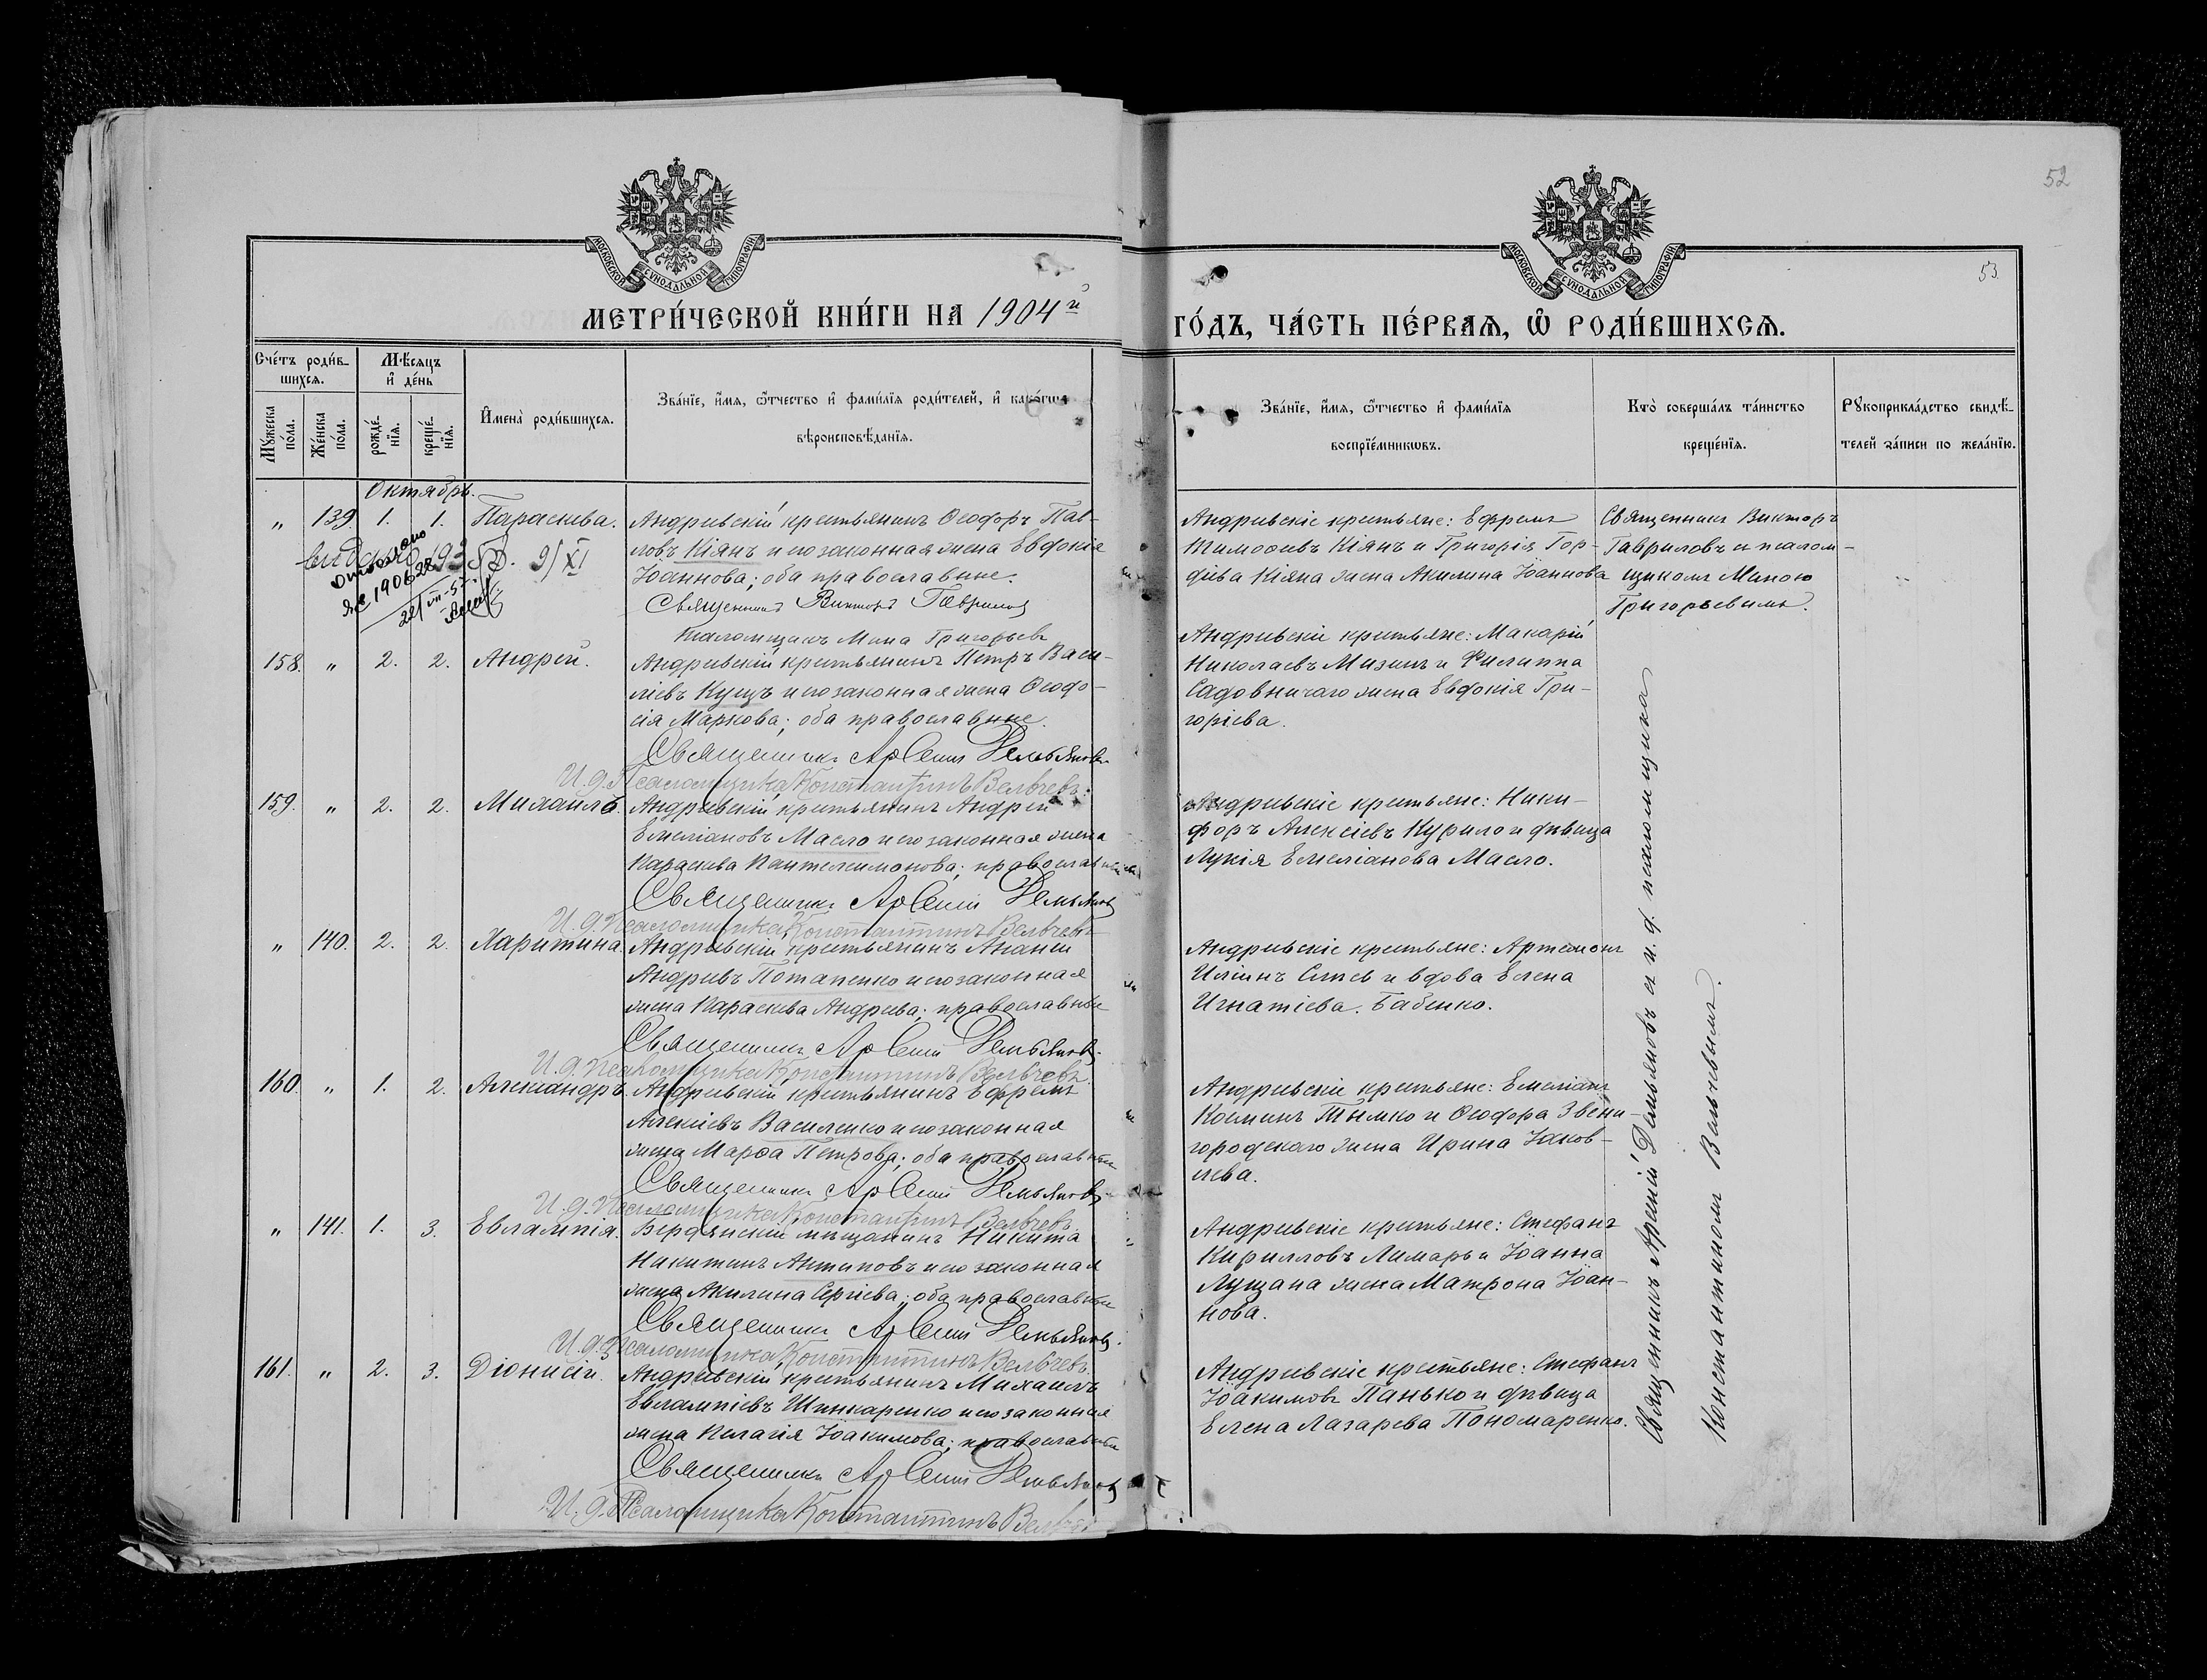 52
53
МОСКОВСКОЙ СѴНОДАЛЬНОЙ ТИПОГРАФІИ
МОСКОВСКОЙ СѴНОДАЛЬНОЙ ТИПОГРАФІИ
МЕТРИ́ЧЕСКОЙ КНИ́ГИ НА 1904й
ГО́ДЪ, ЧА́СТЬ ПЕ́РВАѦ, Ѽ РОДИ́ВШИХСѦ.
Сче́тъ роди́в-
шихсѧ.
Мꙋ́жеска
по́ла.
Же́нска
по́ла.
Мѣ́сѧцъ
и҆ де́нь
рожде́-
нїѧ.
креще́-
нїѧ.
И҆мена̀ роди́вшихсѧ.
Зва́нїе, и҆́мѧ, ѻ҆́тчество и҆ фами́лїѧ роди́телей, и҆ како́гѡ
вѣроисповѣ́данїѧ.
Зва́нїе, и҆́мѧ, ѻ҆́тчество и҆ фами́лїѧ
воспрїе́мникѡвъ.
Кто̀ соверша́лъ та́инство
креще́нїѧ.
Рꙋкоприкла́дство свидѣ́-
телей за́писи по жела́нїю.
Октябрь.
" 139. 1. 1. Параскева. Андреевскій крестьянинъ Ѳеодоръ Пав-
ловъ Кіянъ и его законная жена Евдокія
Іоаннова; оба православные.
Священникъ Викторъ Гаврилов
Псаломщикъ Мина Григорьев
9/XI
№ 190628
Андреевскіе крестьяне: Ефремъ
Тимоѳеевъ Кіянъ и Григорія Гор-
дѣева Кіяна жена Акилина Іоаннова
Священникъ Викторъ
Гавриловъ съ псалом-
щикомъ Миною
Григорьевымъ.
158. " 2. 2. Андрей. Андреевскій крестьянинъ Петръ Васи-
ліевъ Кущъ и его законная жена Ѳеодо-
сія Маркова; оба православные.
Священникъ Арсеній Демьянов
И. д. Псаломщика Константинъ Вельчевъ.
Андреевскіе крестьяне: Макарій
Николаевъ Мизинъ и Филиппа
Садовничаго жена Евдокія Гри-
горіева.
159. " 2. 2. Михаилъ. Андреевскій крестьянинъ Андрей
Емеліановъ Масло и его законная жена
Параскева Пантелеимонова; православные
Священникъ Арсеній Демьянов
И. д. Псаломщика Константинъ Вельчевъ
Андреевскіе крестьяне: Ники-
форъ Алексіевъ Курило и дѣвица
Лукія Емеліанова Масло.
" 140. 2. 2. Харитина. Андреевскій крестьянинъ Ананій
Андреевъ Потапенко и его законная
жена Параскева Андреева; православные
Священникъ Арсеній Демьянов
И. д. Псаломщика Константинъ Вельчевъ.
Андреевскіе крестьяне: Артемонъ
Иліинъ и вдова Елена
Игнатіева Бабенко.
160. " 1. 2. Александръ. Андреевскій крестьянинъ Ефремъ
Алексіевъ Василенко и его законная
жена Марѳа Петрова; оба православные
Священникъ Арсеній Демьянов
И. д. Псаломщика Константинъ Вельчевъ.
Андреевскіе крестьяне: Емеліанъ
Косминъ Тымко и Ѳеодора Звени-
городскаго жена Ирина Іаков-
лева.
" 141. 1. 3. Евлампія. Бердянскій мѣщанинъ Никита
Никитинъ Антиповъ и его законная
жена Акилина Сергіева; оба православные
Священникъ Арсеній Демьянов.
И. д. Псаломщика Константинъ Вельчевъ.
Андреевскіе крестьяне: Стефанъ
Кирилловъ Лимарь и Іоанна
Лущана жена Матрона Іоан-
нова.
161. " 2. 3. Діонисій. Андреевскій крестьянинъ Михаилъ
Евлампіевъ Шинкаренко и его законная
жена Пелагія Іоакимова; православные
Священникъ Арсеній Демьянов
И. д. Псаломщика Константинъ
Андреевскіе крестьяне: Стефанъ
Іоакимовъ Панько и дѣвица
Елена Лазарева Пономаренко.
Священникъ Арсеній Демьяновъ съ и. д. псаломщика
Константиномъ Вельчевымъ.